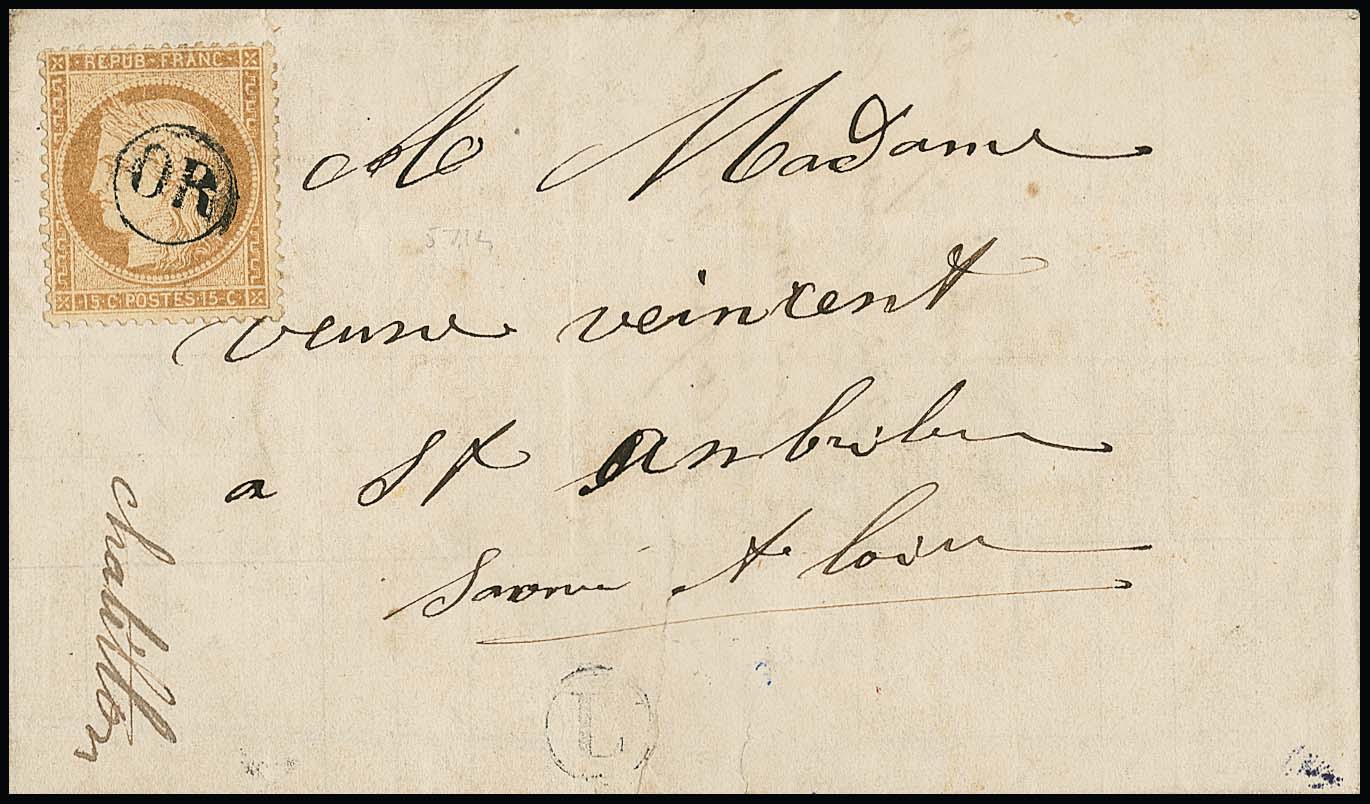 REPUB·FRANC
OR
15·C·POSTES·15·C·
A Madame
5114
veuve veincent
a St ambribu
Saonne et loire
chatillon
L